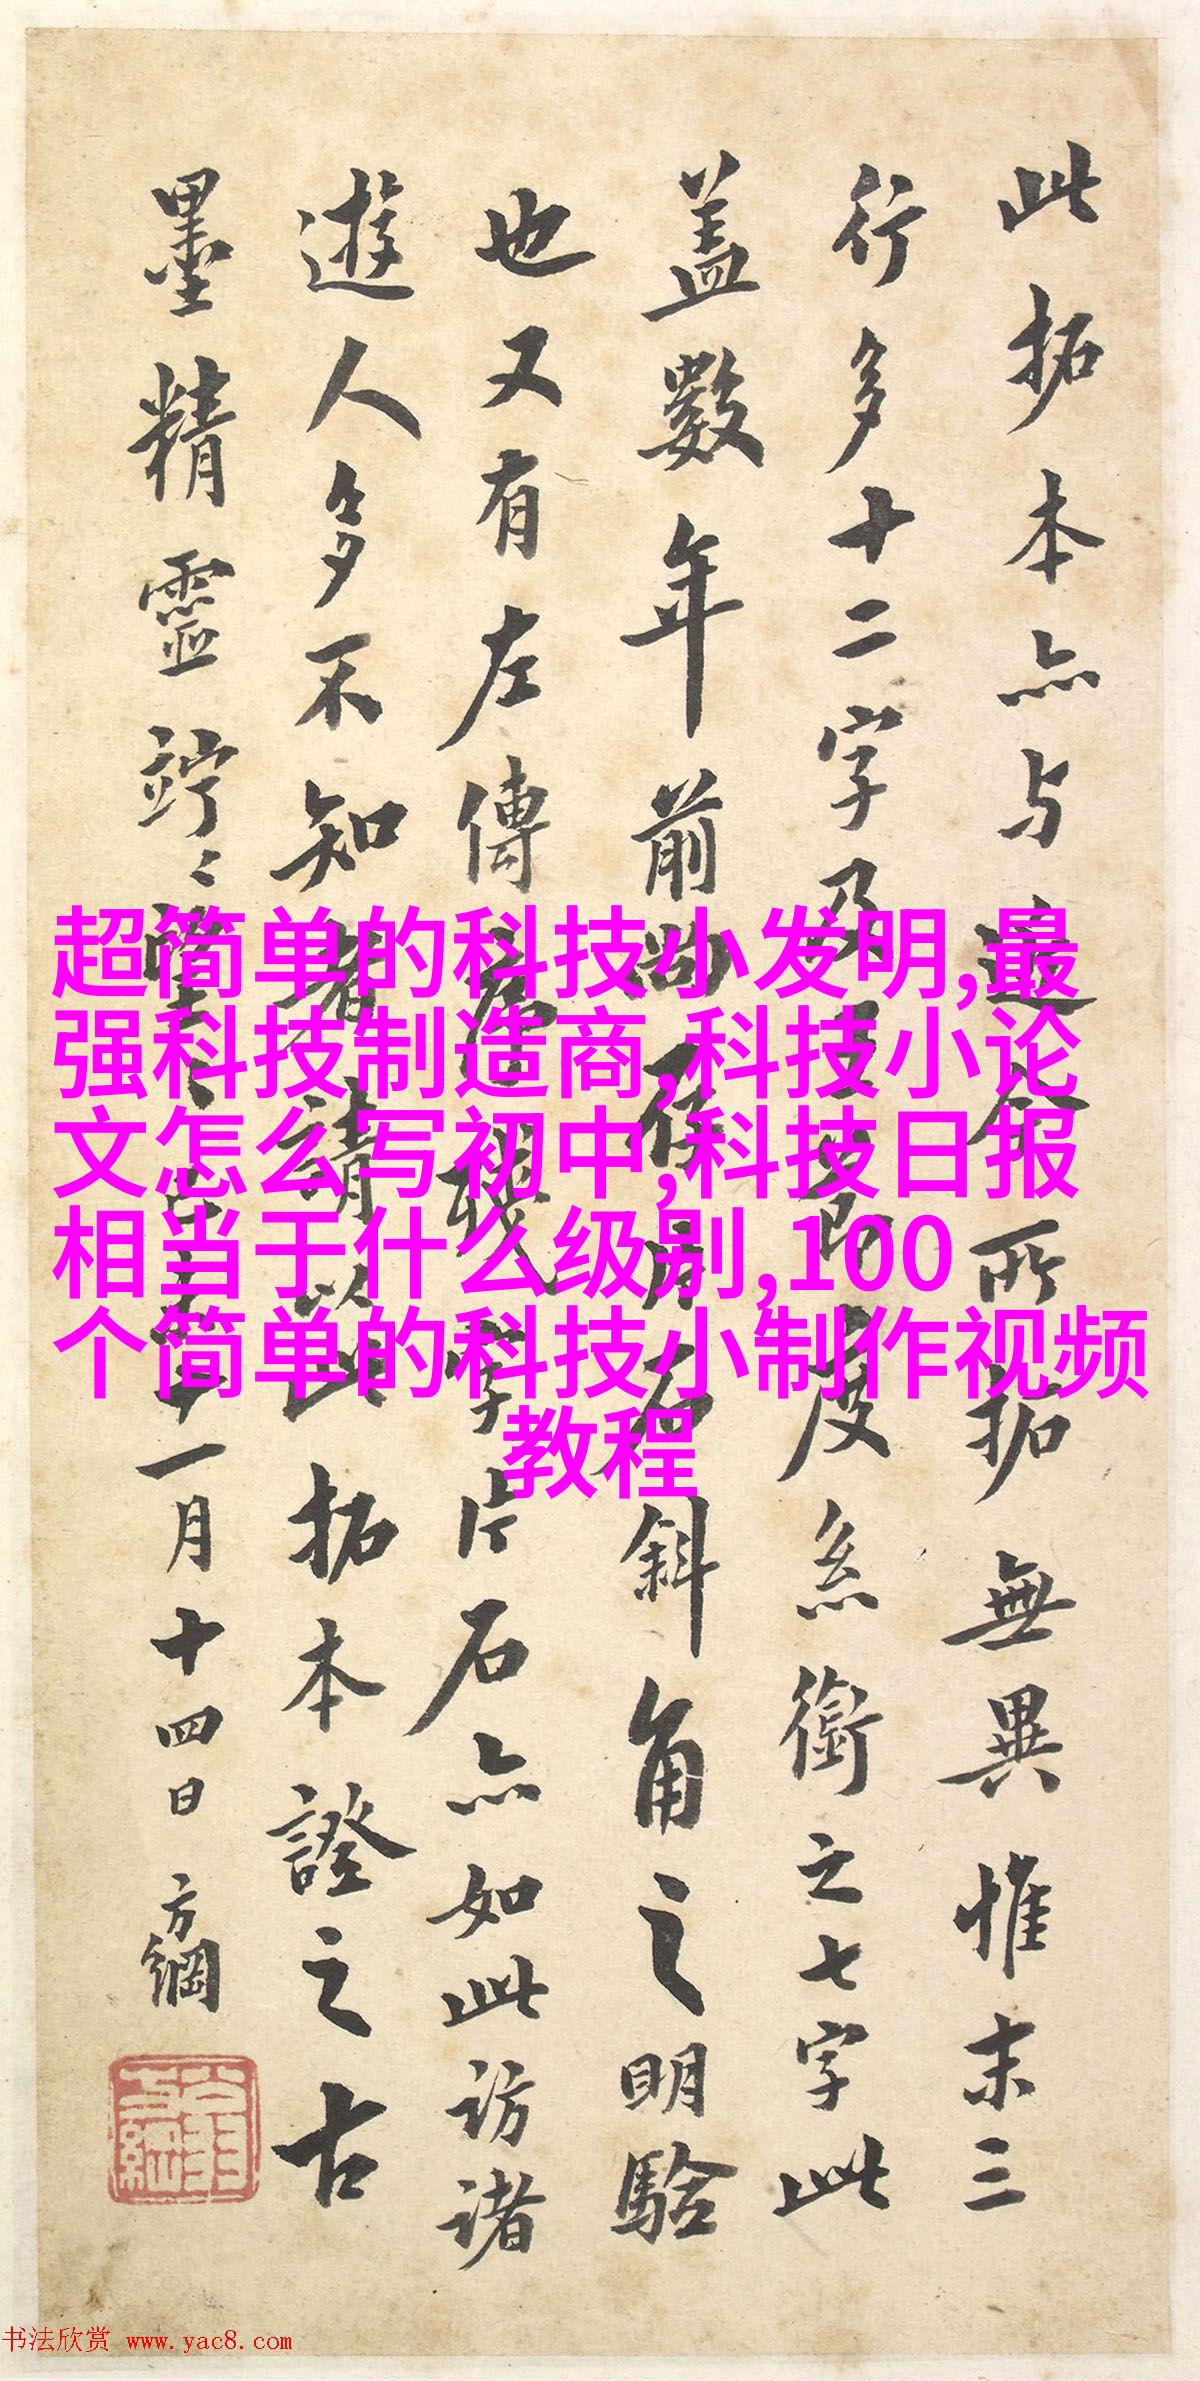 此拓本亦与今所拓無異惟末三
行多十二字及度系銜之七字此
蓋數年前尚石斜角之明驗
也又有左傳字片石亦如此訪諸
遊人多不知者請以此拓本證之古
墨精靈竚〻望〻一月十四日 方綱
超简单的科技小发明,最
强科技制造商,科技小论
文怎么写初中,科技日报
相当于什么级别,100
个简单的科技小制作视频
教程
书法欣赏 www.yac8.com